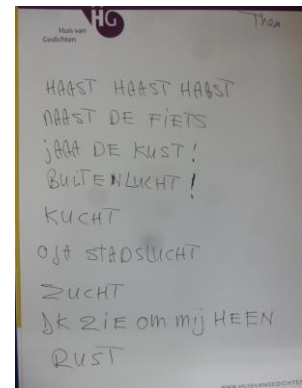 HG
Huis van
Gedichten
Thea
HAAST HAAST HAAST
NAAST DE FIETS
jAAA DE KUST!
BUITENLUCHT!
KUCHT
OJA STADSLUCHT
ZUCHT
IK ZIE om mij HEEN
RUST
WWW.HUISVANGEDICHTEN